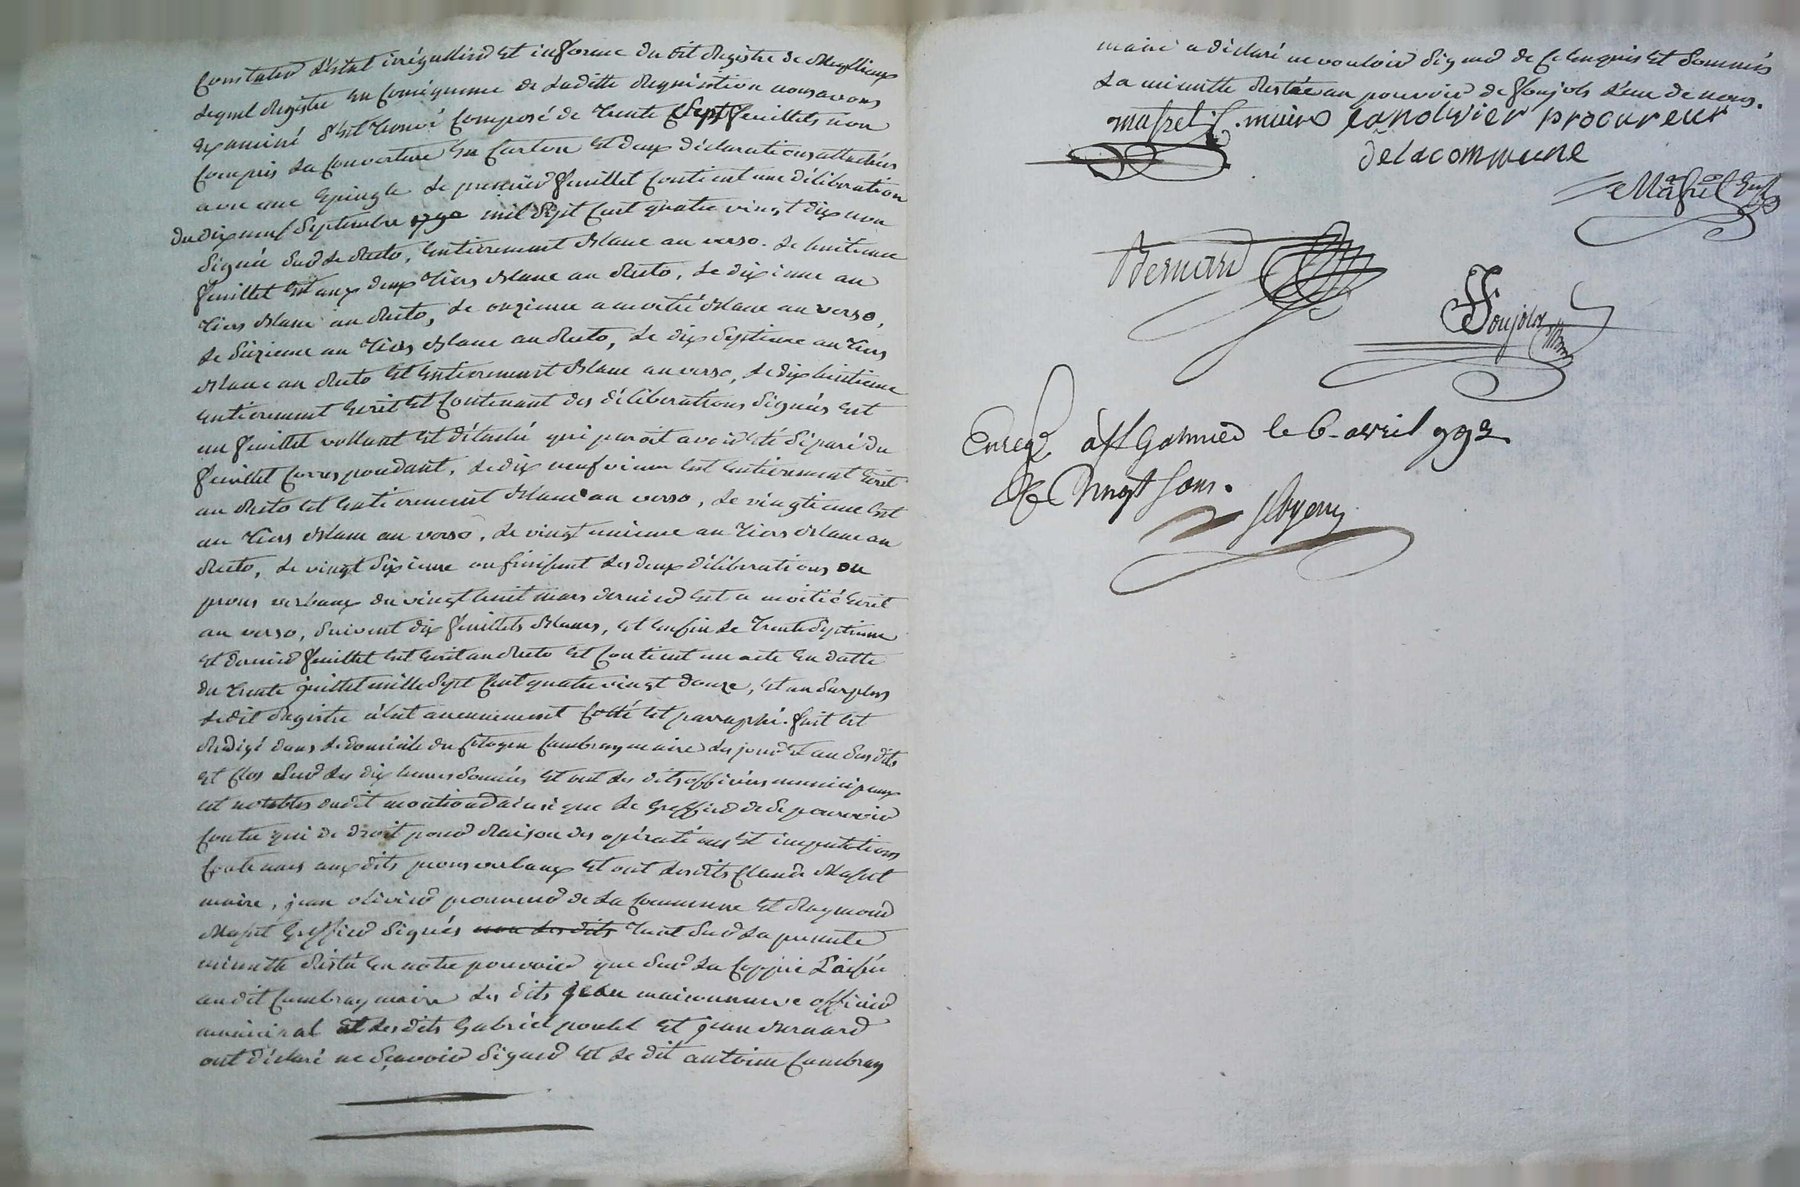 Constater l'état irrégullier et informe du dit Registre de
lequel Registre en Conséquence de laditte Requisition nous avons
Examiné s'est trouvé Composé de trente Sept feuillets non
Compris la Couverture En Carton et deux déclarations attachées
avec une Epingle le premier feuillet Contient une délibération
du dix neuf Septembre mil Sept Cent quatre vingt dix non
Signée Sur le Recto, Entierement blanc au verso. le huitieme
feuillet Est aux deux tiers blanc au Recto, le dixieme au
tiers blanc au Recto, le onzieme a moitié blanc au verso,
le au tiers blanc au Recto, le dix Septieme au tiers
blanc au Recto et Entierement blanc au verso, le dix huitieme
Entierement Ecrit et Contenant des délibérations Signées est
un feuillet vollant et détaché qui paroit avoir été Séparé du
feuillet Correspondant, le dix neufvieme est Entierement Ecrit
au Recto et Entierement blanc au verso, le vingtieme Est
au tiers blanc au verso, le vingt unieme au tiers blanc au
Recto, le vingt Sixieme ou finissent les deux délibérations ou
proces verbaux du vingt huit mars dernier est a moitié Ecrit
au verso, Suivent dix feuillets blancs, et Enfin le trente Septieme
et dernier feuillet est Ecrit au Recto et Contient un acte En datte
du trente juillet mille Sept Cent quatre vingt douze, et au Surplus
ledit Registre a été anciennement Cotté et paraphé. fait et
Rédigé dans le domicile du Citoyen Cambray maire les jour et an Susdits
et Clos Sur les dix heures Sonnées et ont les dits officiers municipaux
et notables ainsi que le Greffier de Se pourvoir
Contre qui de droit pour Raison des opérations et imputations
Contenues auxdits proces verbaux et ont lesdits Claude Masset
maire, jean olivier procureur de la Commune et Raymond
Masset Greffier Signés non les dits tant Sur la presente
minutte Restée En notre pouvoir que Sur la Coppie Laissée
audit Cambray maire les dits jean maisonneuve officier
municipal et lesdits Gabriel poulet et jean bernard
ont déclaré ne Sçavoir Signer et le dit antoine Cambray
maire a déclaré ne vouloir Signer de Ce Enquis et Sommés
La minutte Restée au pouvoir de Soujols L'un de nous.
masset maire jean olivier procureur
de la commune
Masset
Bernard
Soujols
Enreg à St Galmier le 6 avril 1793
R vingt sous.